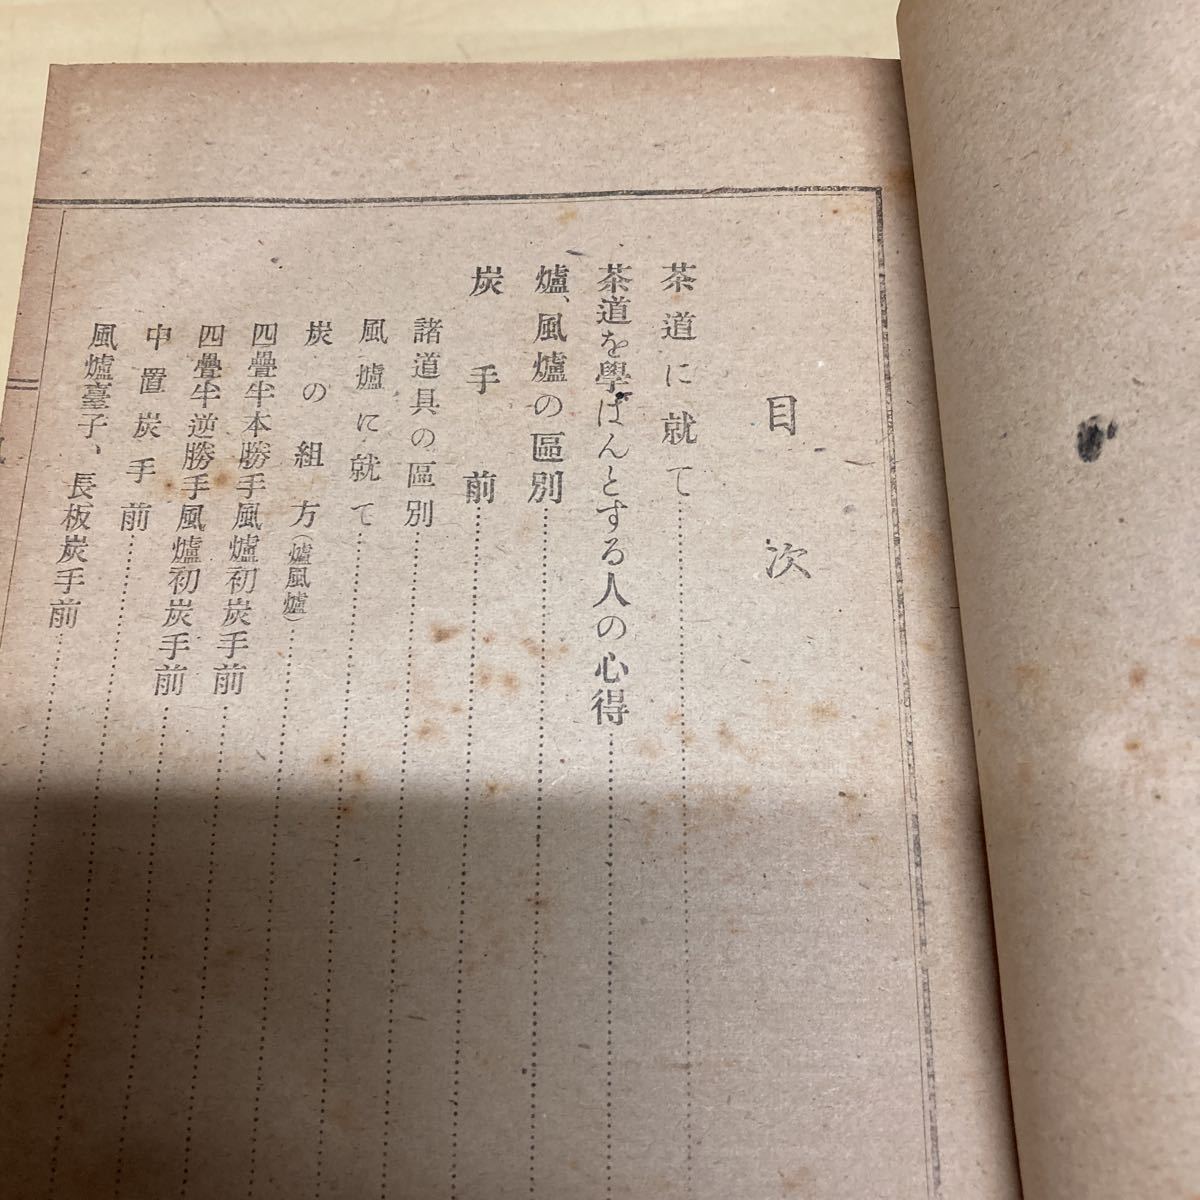 目次
茶道に就て
茶道を學ばんとする人の心得
爐、風爐の區別
炭手前
諸道具の區別
風爐に就て
炭の組方（爐風爐）
四疊半本勝手風爐初炭手前
四疊半逆勝手風爐初炭手前
中置炭手前
風爐臺子、長板炭手前